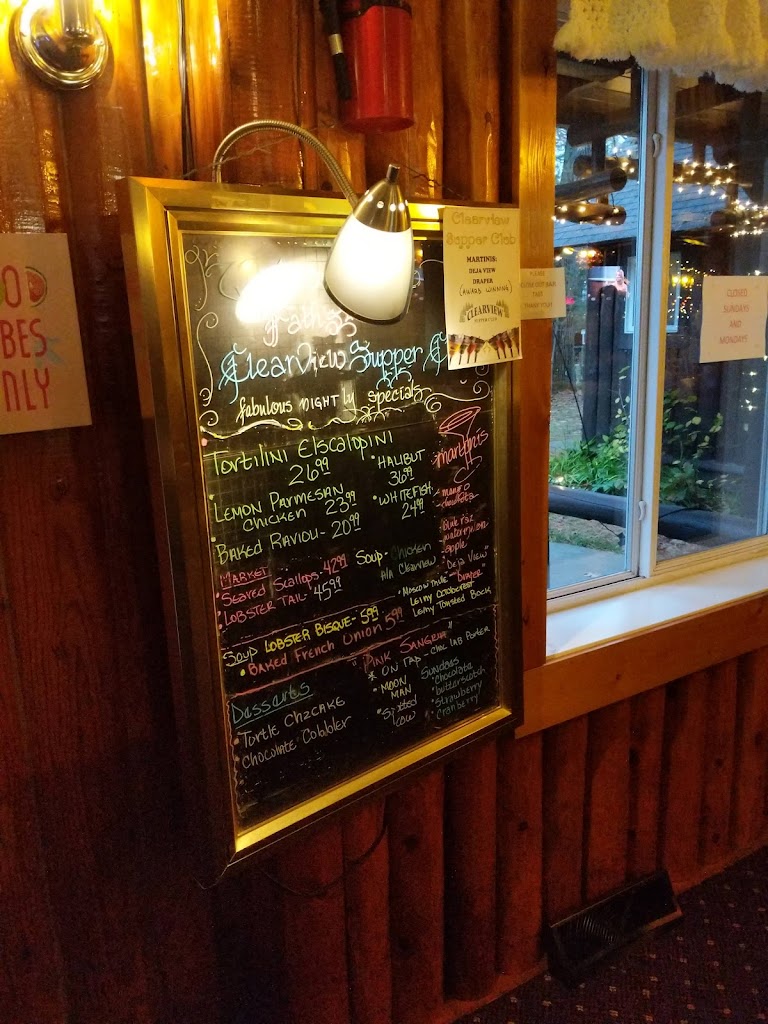 BES
NLY
Clearview
Supper Club
MARTINIS:
DEJA VIEW
DRAPER
(AWARD WINNING)
CLEARVIEW
PLEASE
THANK YOU!
CLOSED
SUNDAYS
AND
MONDAYS
ClearView Supper C
fabulous NIGHTly specials
Tortilini Elscalopini
26.99
• LEMON PARMESAN
CHICKEN 23.99
• BAKED RAVIOLI - 20.99
• HALIBUT
36.99
• WHITEFISH
24.99
martinis
- mango
- chocolate
watermelon
- apple
- "Deja View"
- "Draper"
MARKET
• Seared Scallops - 42.99
• LOBSTER TAIL - 45.99
Soup - Chicken
A/A Clearview
• Moscow Mule
Leiny Octoberfest
Leiny Toasted Bock
SOUP LOBSTER BISQUE - 5.99
• BAKED FRENCH UNION 5.99
"PINK SANGRIA"
* ON TAP -
• MOON
MAN
• Spotted
COW
Sundaes
• chocolate
• butterscotch
• Strawberry
• Cranberry
Desserts
• Turtle CHZCAKE
• CHOCOLATE COBBLER